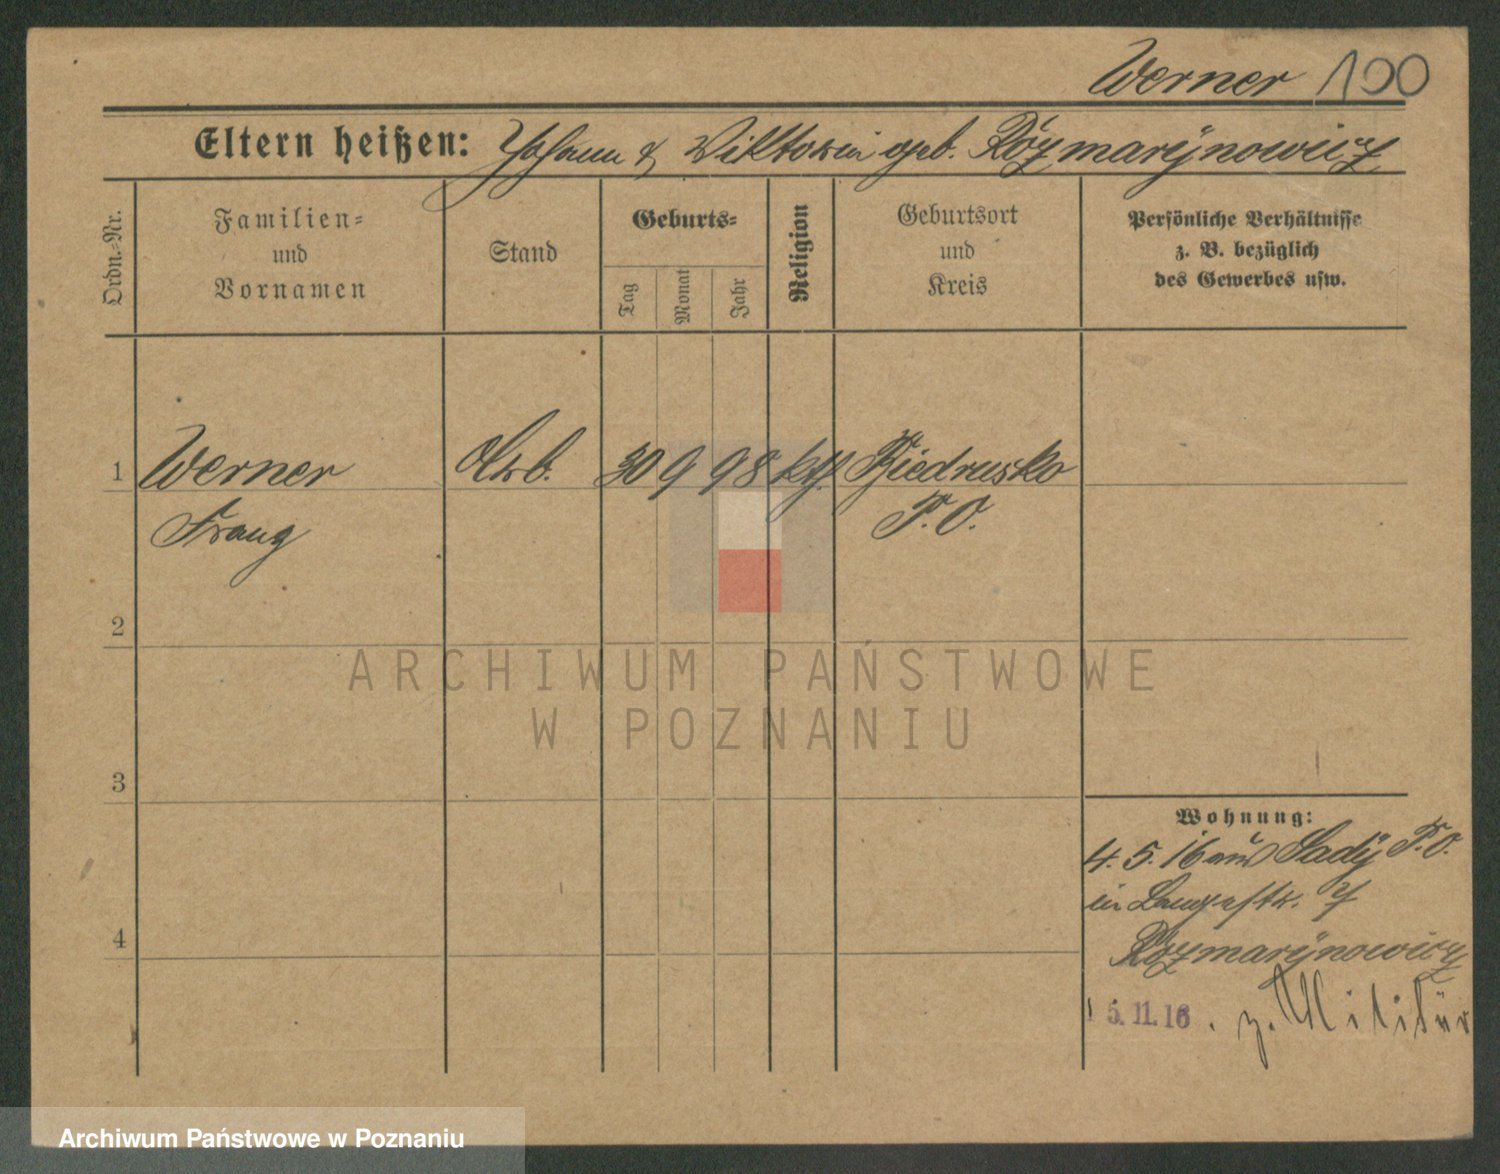 Werner 100
Eltern heißen: Johann & Viktoria geb. Rózmarÿnowicz
Ordn.=Nr.
Familien=
und
Vornamen
Stand
Geburts=
Tag
Monat
Jahr
Religion
Geburtsort
und
Kreis
Persönliche Verhältnisse
z. B. bezüglich
des Gewerbes usw.
1 Werner Arb. 30 9 98 kth. Biedrusko
Franz P. O.
2
3
4
Wohnung:
4. 5. 16 aus Sadÿ P. O.
in Langestr. 4
Rózmarÿnowicz
15. 11. 16. z. Militär
ARCHIWUM PAŃSTWOWE
W POZNANIU
Archiwum Państwowe w Poznaniu